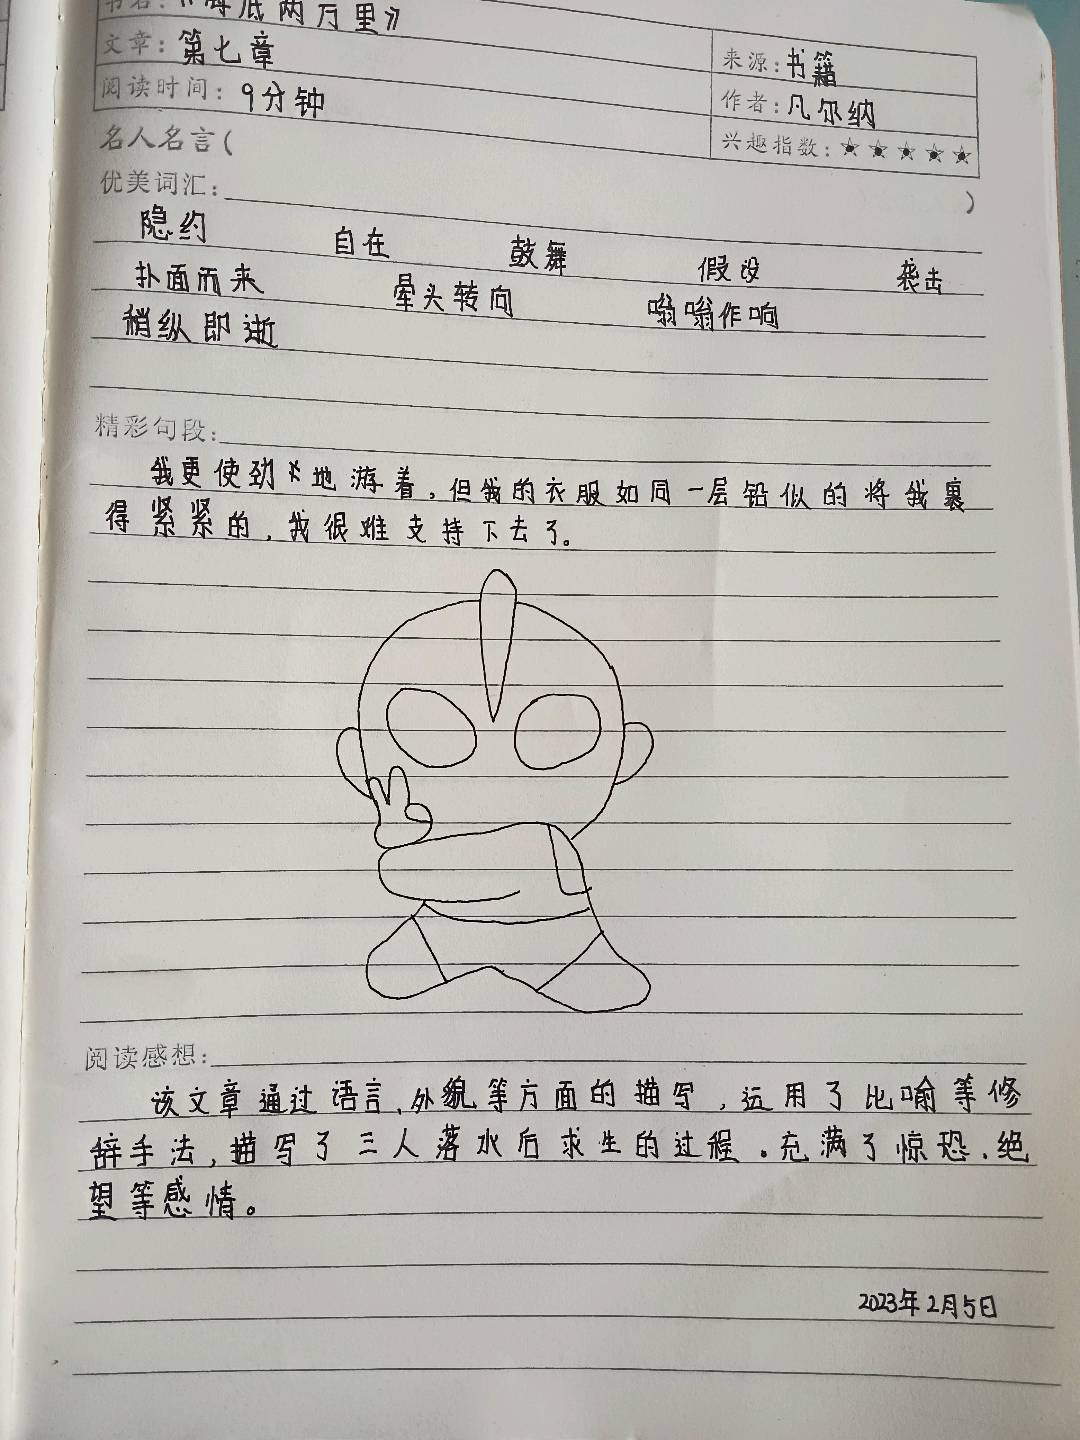 书名：《海底两万里》
文章：第七章
来源：书籍
阅读时间：9分钟
作者：凡尔纳
兴趣指数：★★★★★
名人名言(
)
优美词汇：
隐约 自在 鼓舞 假设 袭击
扑面而来 晕头转向 嗡嗡作响
稍纵即逝
精彩句段：
我更使劲地游着，但我的衣服如同一层铅似的将我裹
得紧紧的，我很难支持下去了。
阅读感想：
该文章通过语言、外貌等方面的描写，运用了比喻等修
辞手法，描写了三人落水后求生的过程。充满了惊恐、绝
望等感情。
2023年2月5日